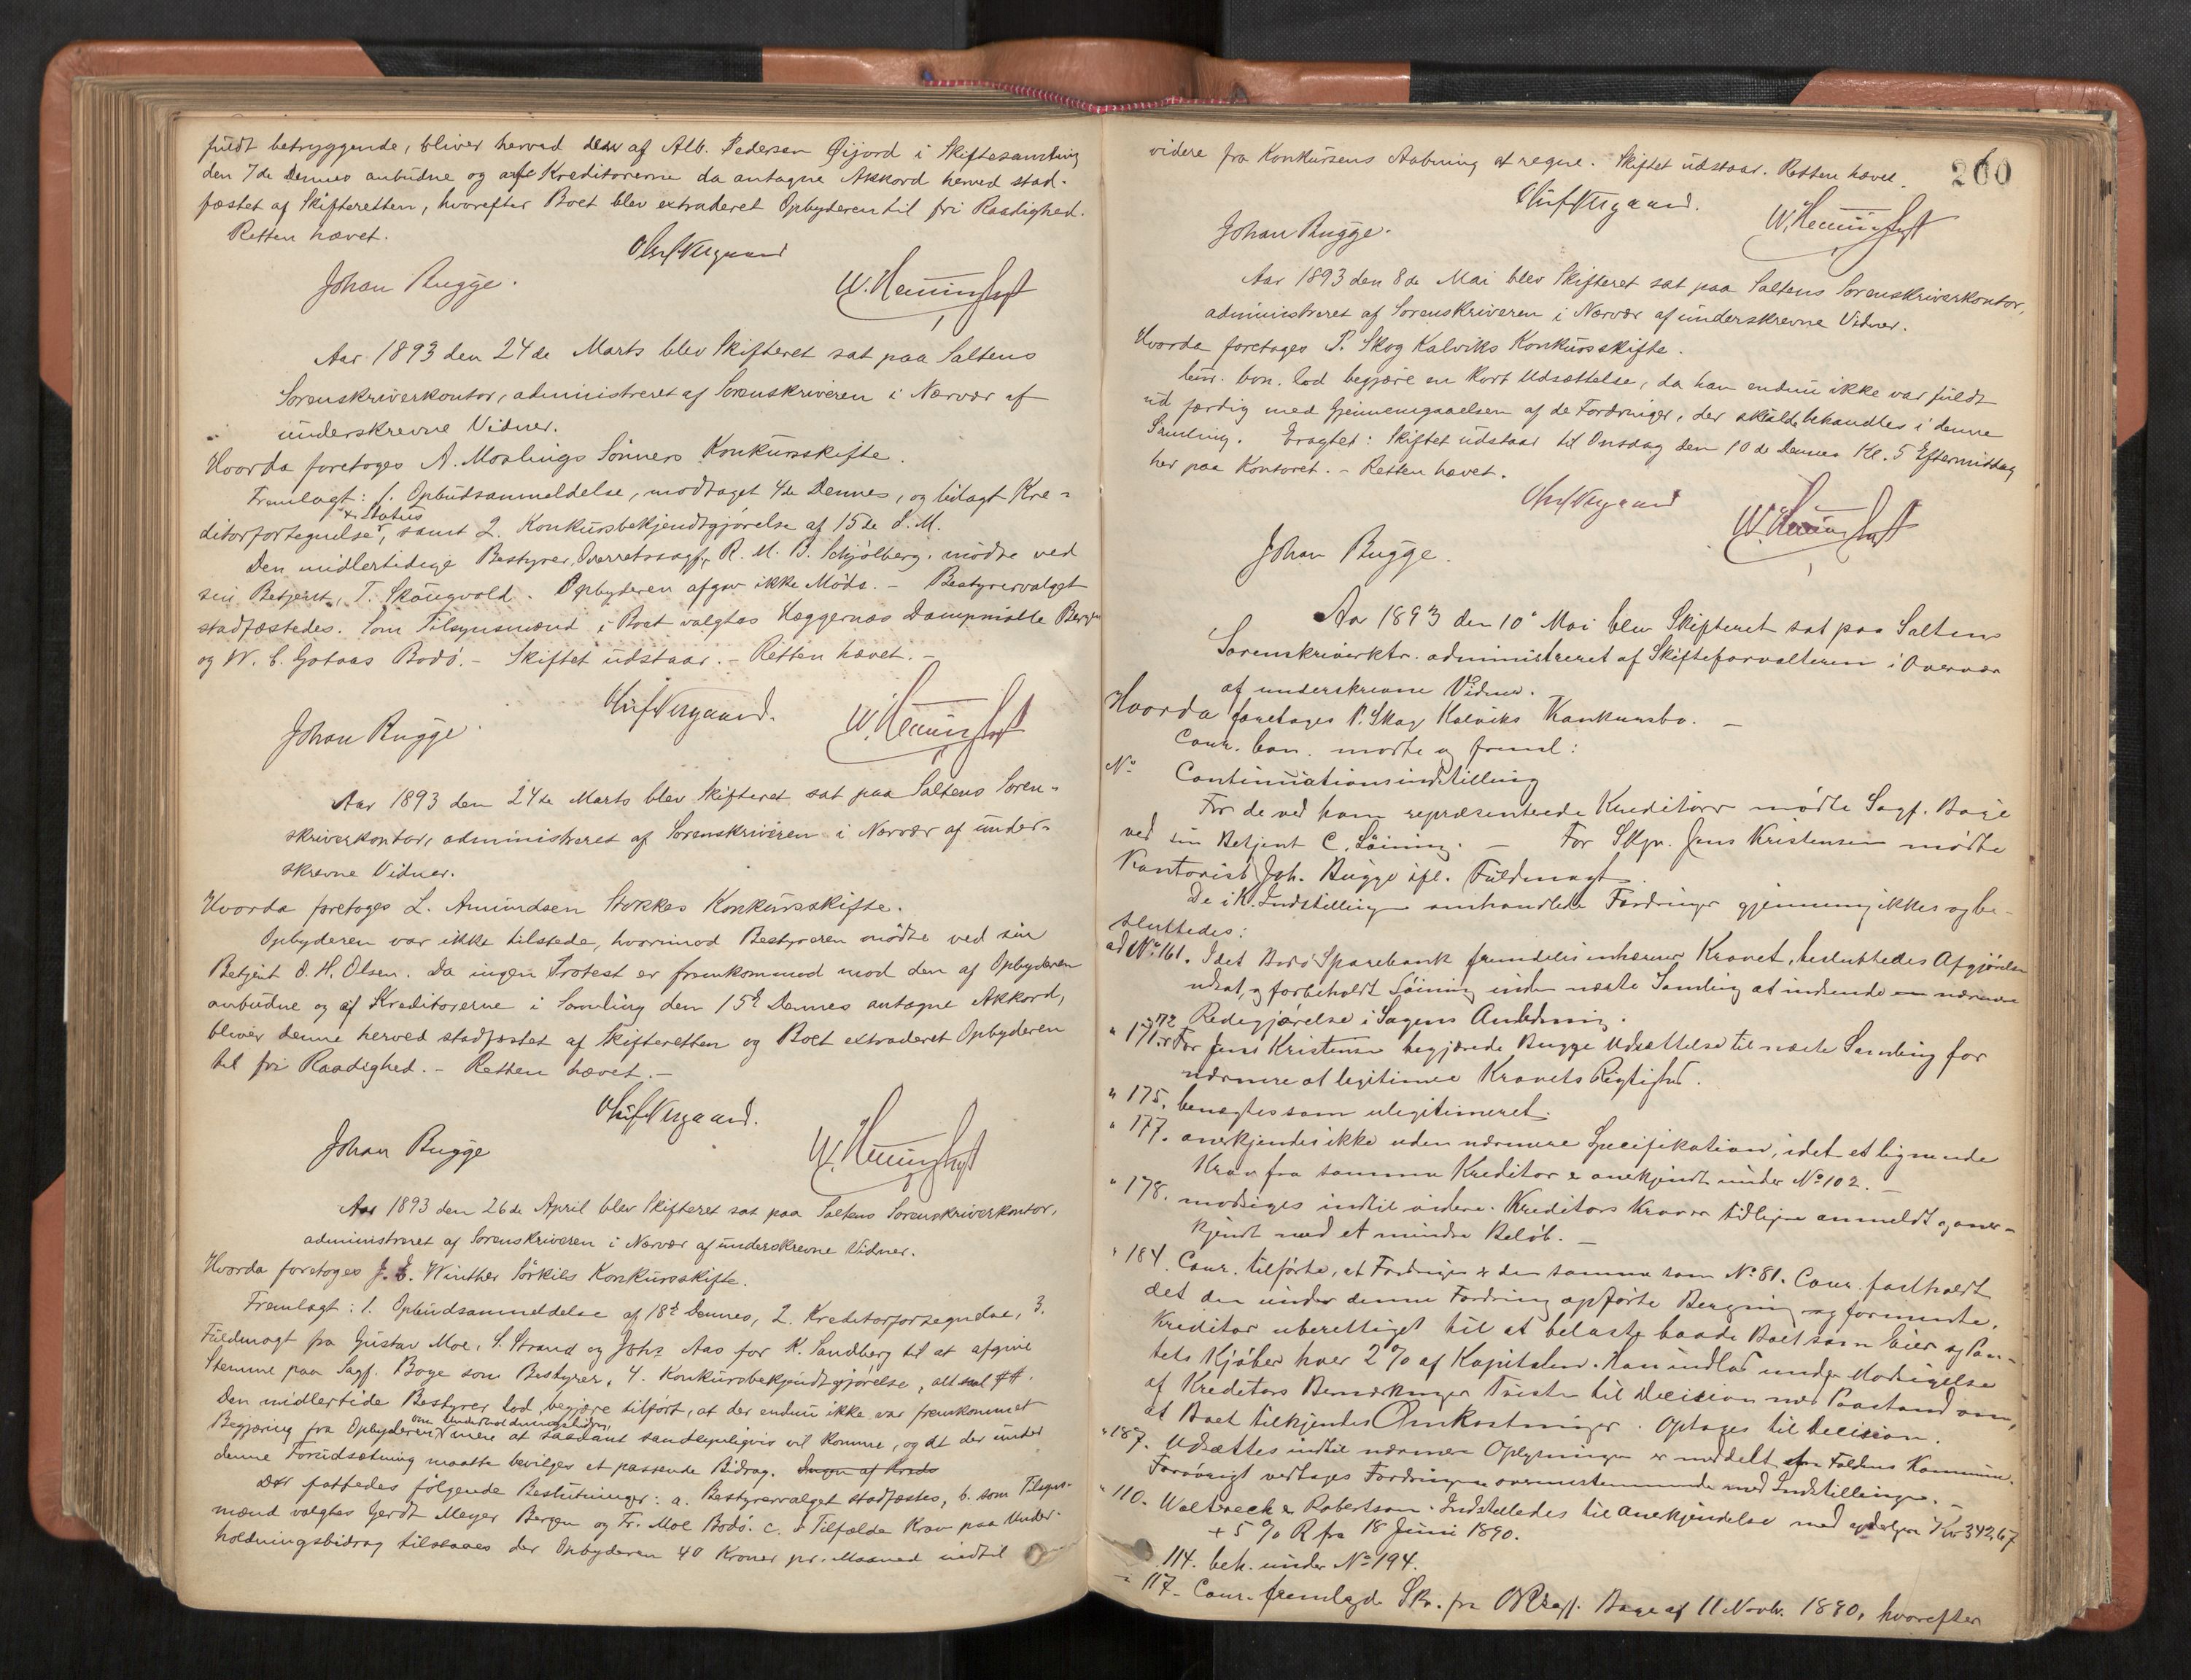 fuldt betryggende, bliver herved den af Alb. Pedersen Øijord i Skiftesamling
den 7de Dennes anbudne og af Kreditorerne da antagne Akkord herved stad-
fæstet af Skifteretten, hvorefter Boet blev extraderet Opbyderen til fri Raadighed.
Retten hævet.
Johan Bugge.
Aar 1893 den 24de Marts blev Skifteret sat paa Saltens
Sorenskriverkontor, administreret af Sorenskriveren i Nærvær af
underskrevne Vidner.
Hvorda foretoges A. Moslings Sönners Konkursskifte.
Fremlagt: 1. Opbudsanmeldelse, modtaget 4de Dennes, og bilagt Kre-
& Status
ditorfortegnelse, samt 2. Konkursbekjendtgjörelse af 15de d. M.
Den midlertidige Bestyrer, Overretssagf. R. M. B. Schjölberg, mödte ved
sin Betjent, T. Skaugvold. Opbyderen afgav ikke Möde. - Bestyrervalget
stadfæstedes. Som Tilsynsmænd i Boet valgtes Hæggernæs Dampmölle Bergen
og W. C. Gotaas Bodö. - Skiftet udstaar. - Retten hævet. -
Johan Bugge.
Aar 1893 den 24de Marts blev Skifteret sat paa Saltens Soren-
skriverkontor, administreret af Sorenskriveren i Nærvær af under-
skrevne Vidner.
Hvorda foretoges L. Amundsen Stokkes Konkursskifte.
Opbyderen var ikke tilstede, hvorimod Bestyreren mödte ved sin
Betjent O. H. Olsen. Da ingen Protest er fremkommed mod den af Opbyderen
anbudne og af Kreditorerne i Samling den 15d Dennes antagne Akkord,
bliver denne herved stadfæstet af Skifteretten og Boet extraderet Opbyderen
til fri Raadighed. - Retten hævet. -
Johan Bugge
Aar 1893 den 26de April blev Skifteret sat paa Saltens Sorenskriverkontor,
administreret af Sorenskriveren i Nærvær af underskrevne Vidner.
Hvorda foretoges J. E. Winther Sörkils Konkursskifte.
Fremlagt: 1. Opbudsanmeldelse af 18d Dennes, 2. Kreditorfortegnelse, 3.
Fuldmagt fra Gustav Moe, S. Strand og Johs Aas for K. Sandberg til at afgive
Stemme paa Sagf. Boye som Bestyrer, 4. Konkursbekjendtgjörelse, alt
Den midlertide Bestyrer lod begjære tilfört, at der endnu ikke var fremkommet
om Underholdningsbidrag
Begjæring fra Opbyderen, men at saadant sandsynligvis vil komme, og at der under
denne Forudsætning maatte bevilges et passende Bidrag. Ingen af Kredi
Der fattedes fölgende Beslutninger: a. Bestyrervalget stadfæstes, b. som Tilsyns-
mænd valgtes Gerdt Meyer Bergen og Fr. Moe Bodö. c. I Tilfælde Krav paa Under-
holdningsbidrag tilstaaes der Opbyderen 40 Kroner pr. Maaned indtil
260
videre fra Konkursens Aabning at regne. Skiftet udstaar. Retten hævet.
Johan Bugge.
Aar 1893 den 8de Mai blev Skifteret sat paa Saltens Sorenskriverkontor,
administreret af Sorenskriveren i Nærvær af underskrevne Vidner.
Hvorda foretoges P. Skog Kalviks Konkursskifte.
Cur. bon. lod begjære en kort Udsættelse, da han endnu ikke var fuldt
ud færdig med Gjennemgaaelsen af de Fordringer, der skulde behandles i denne
Samling. Eragtet: Skiftet udstaar til Onsdag den 10de Dennes Kl. 5 Eftermiddag
her paa Kontoret. - Retten hævet.
Johan Bugge.
Aar 1893 den 10de Mai blev Skifteret sat paa Saltens
Sorenskriverktr. administreret af Skifteforvalteren i Overvær
af underskrevne Vidner.
Hvorda foretoges P. Skog Kalviks Konkursbo. -
Cour. bon. mødte og freml:
No Continuationsindstilling
For de ved ham repræsenterede Kreditorer mødte Sagf. Boye
ved sin Betjent C. Söining. - For Skpr. Jens Kristensen mødte
Kontorist Joh. Bugge ifl. Fuldmagt.
De i K. Indstilling omhandlede Fordringer gjennemgikkes og be-
sluttedes:
ad No 161. Idet Bodö Sparebank fremdeles inhærerer Kravet, besluttedes Afgjörelsen
udsat, og forbeholdt Söining inden næste Samling at indsende en nærmere
Redegjørelse i Sagens Anledning.
" 171 og 172 For Jens Kristensen begjærede Bugge Udsættelse til næste Samling for
nærmere at legitimere Kravets Rigtighed.
" 175. benegtes som ulegitimeret.
" 177. anerkjendes ikke uden nærmere Specifikation, idet et lignende
Krav fra samme Kreditor er anerkjendt under No 102. -
" 178. modsiges indtil videre. Kreditors Krav er tidligere anmeldt og aner-
kjendt med et mindre Beløb. -
" 184. Cour. tilførte, at Fordringen er den samme som No 81. Cour. fastholdt
det den under denne Fordring opførte Beregning og formente,
Kreditor uberettiget til at belaste baade Boet som Eier og Pan-
tets Kjøber hver 2% af Kapitalen. Han indlod under Modsigelse
af Kreditors Bemærkninger Tvisten til Decision med Paastand om,
at Boet tilkjendes Omkostninger. Optages til Decision.
" 187. Udsættes indtil nærmere Oplysninger er meddelt fra Foldens Kommune.
Forøvrigt vedtages Fordringerne overensstemmende med Indstillingen. -
" 110. Woltereck & Robertson. Indstilledes til Anerkjendelse med yderligere Kr 342,67
+ 5 % R fra 18 Juni 1890.
114. beh. under No 194.
" 117. Cour. fremlagde Skr. fra ORsagf. Boye af 11 Novbr. 1890, hvorefter